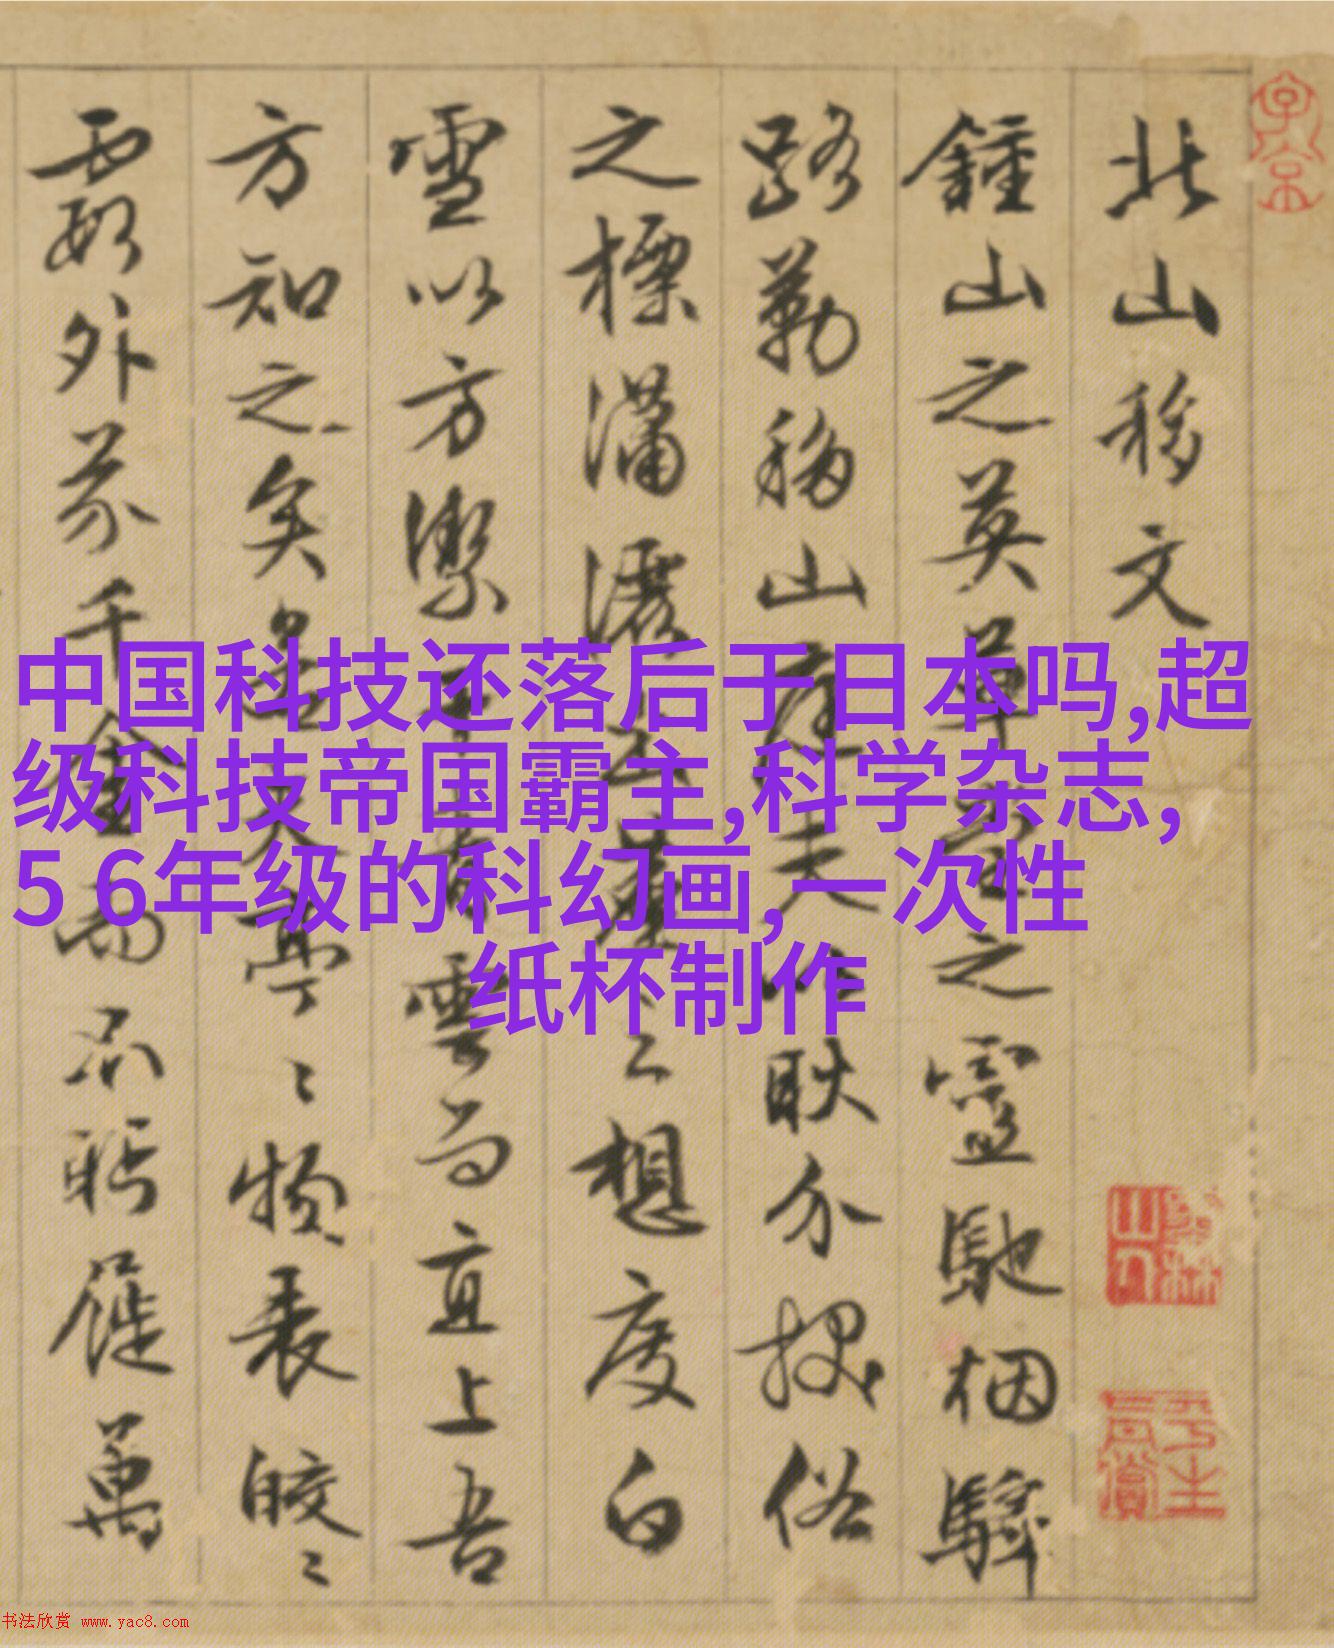 北山移文
鍾山之英草堂之靈馳烟驛
路勒移山庭夫以耿介拔俗
之標瀟灑出塵之想度白
雪以方絜干青雲而直上吾
方知之矣若其亭〻物表皎〻
霞外芥千金而不眄屣萬
中国科技还落后于日本吗,超
级科技帝国霸主,科学杂志,
5 6年级的科幻画,一次性
纸杯制作
书法欣赏 www.yac8.com